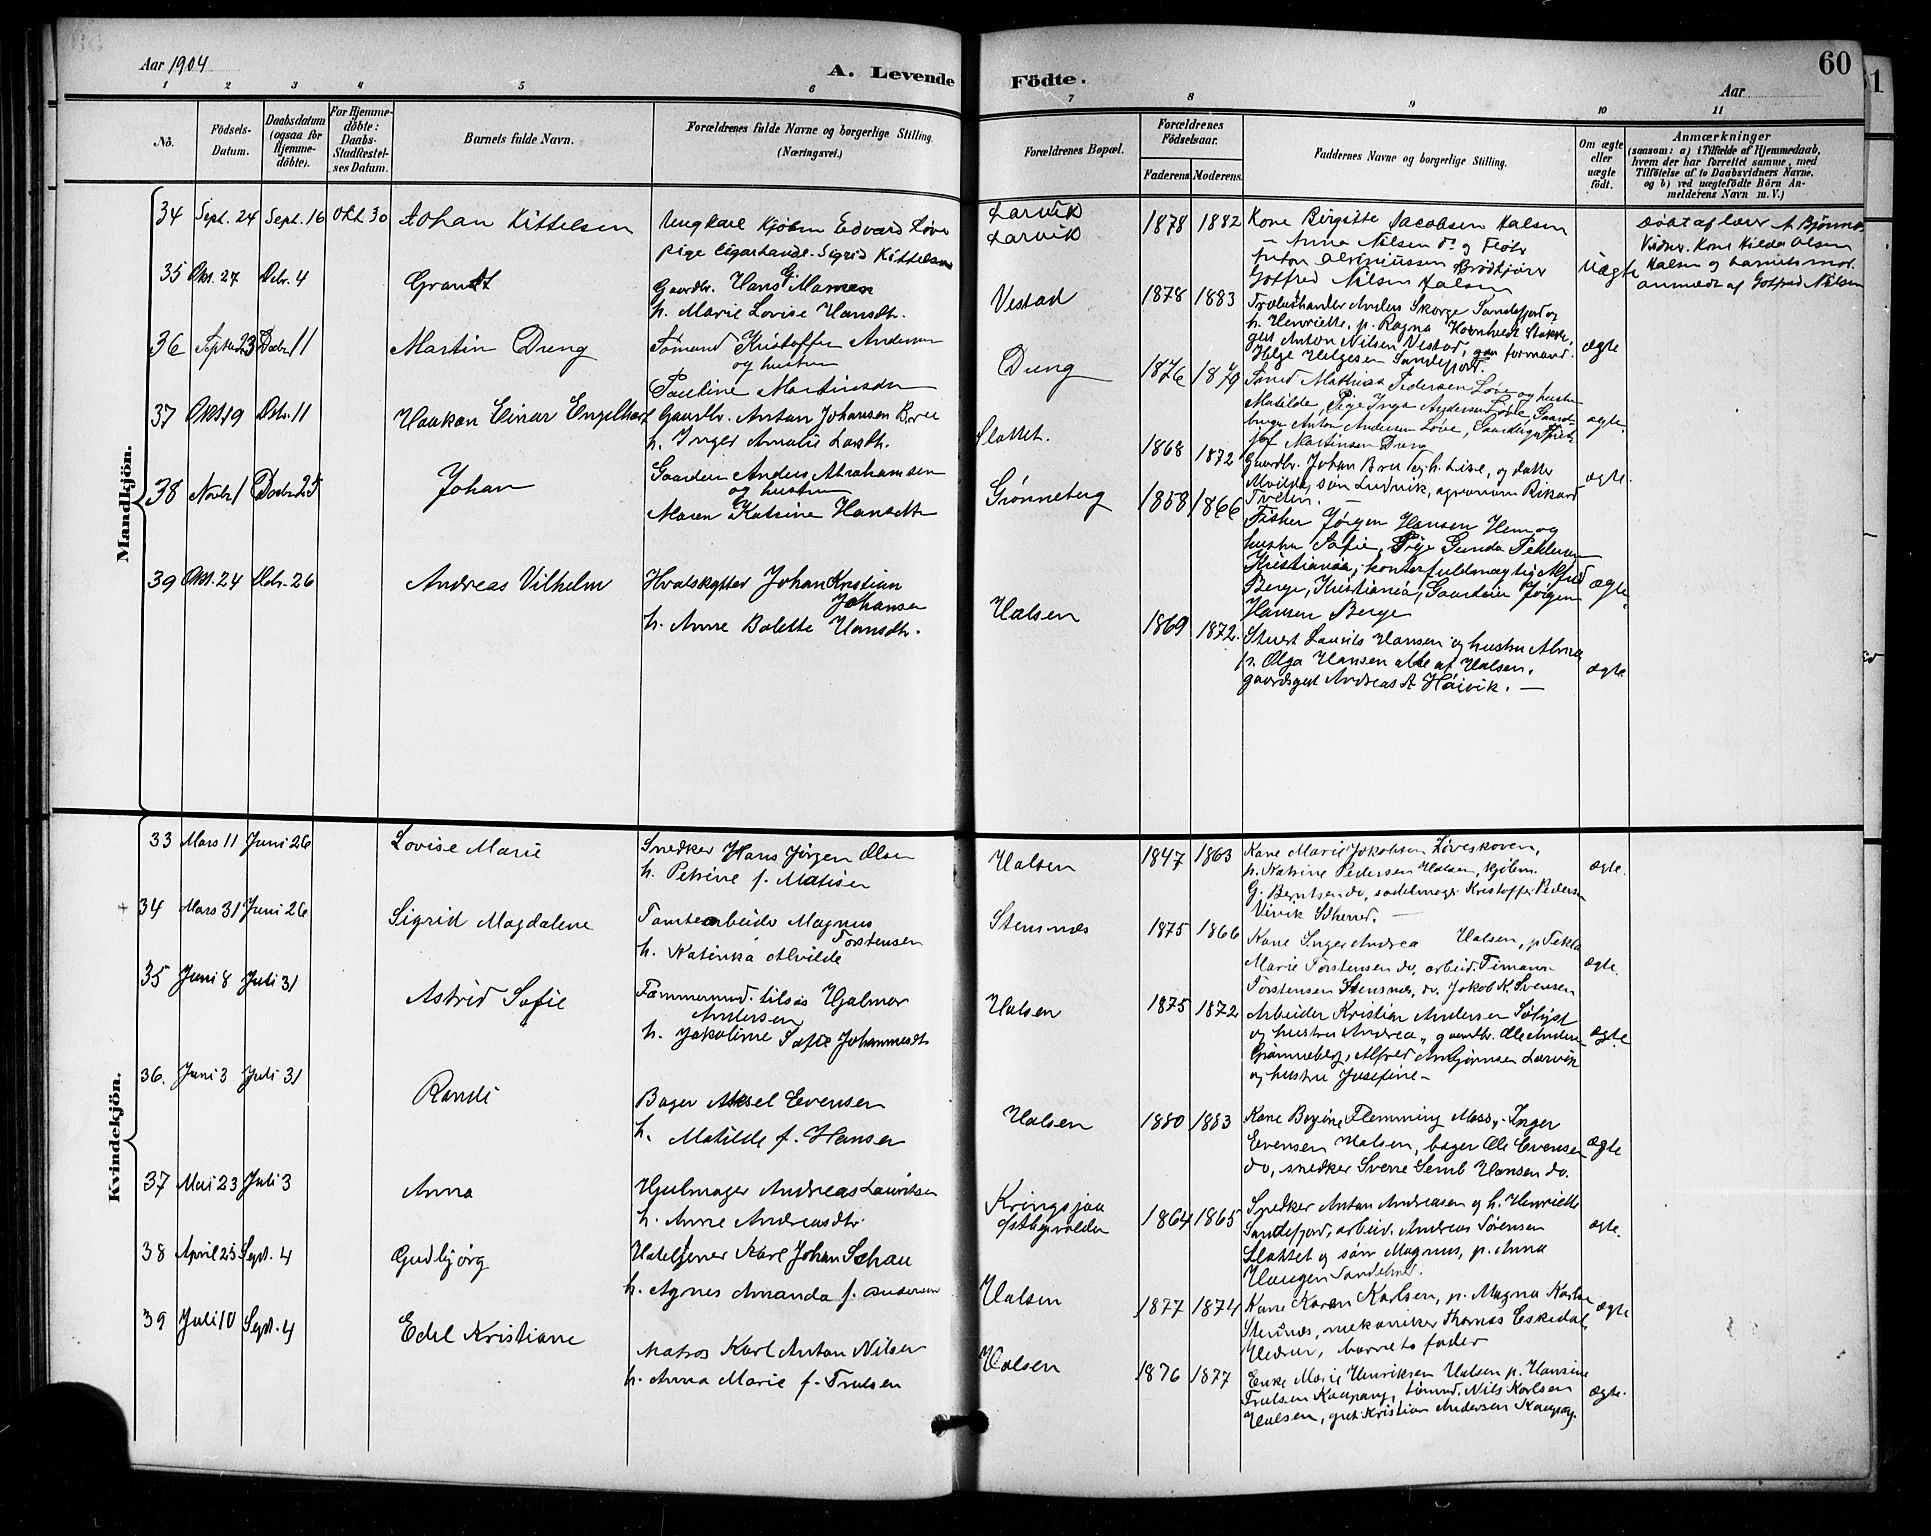 Aar 1904
A. Levende Födte.
Aar
60
1 2 3 4 5 6 7 8 9 10 11
No.
Födsels-Datum.
Daabsdatum (ogsaa for Hjemme-döbte).
For Hjemme-döbte: Daabs-Stadfæstel-ses Datum.
Barnets fulde Navn.
Forældrenes fulde Navne og borgerlige Stilling. (Næringsvei.)
Forældrenes Bopæl.
Forældrenes Födselsaar.
Faderens. Moderens.
Faddernes Navne og borgerlige Stilling.
Om ægte eller uægte födt.
Anmærkninger
(saasom: a) i Tilfælde af Hjemmedaab, hvem der har forrettet samme, med Tilföielse af to Daabsvidners Navne, og b) ved uægtefödte Börn An-melderens Navn m. V.)
Mandkjön.
34 Sept. 24 Sept. 16 Okt. 30 Johan Kittelsen
Ungkarl Kjøbm Edvard Løve
pige Sigrid Kittelsen
Larvik
Larvik
1878 1882
Kone Birgitte Jacobsen Halsen
— Anna Nilsen do og
Gotfred Nilsen Halsen
Uægte
Døbt af lærer A. Bjønnes
Vidner. Kone Hilda Olsen
Halsen og barnets mor.
anmeldt af Gotfred Nilsen
35 Okt. 27 Dcbr. 4 Grandt
Gaardbr. Hans G Mamen
h. Marie Lovise Hansdtr.
Vestad
1878 1883
Trælasthandler Anders Skorge Sandefjord og
h. Henriette, p. Ragna
Anton Nilsen Vestad, formand
Helge Helgesen Sandefjord.
ægte
36 Septbr 23 Dcbr. 11 Martin Dung
Sømand Kristoffer Andersen
og hustru
Pauline Martinsdtr
Dung
1876 1879
Smed Mathias Pedersen Løve og hustru
Matilde, Pige Inga Andersen Løve, Gaard-
bruger Anton Andersen Løve,
Martinsen Dung
ægte.
37 Okt. 19 Dcbr. 11 Haakon Einar Engelhart
Gaardbr. Anton Johansen Bree
h. Inger Amalie Larsdtr.
Slottet.
1868 1872
Gaardbr. Johan Bru og h. Lise, og datter
Alvilde, søn Ludvik, agronom Rikard
Tveten. —
ægte.
38 Novbr 1 Dcebr 25 Johan
Gaardeier Anders Abrahamsen
og hustru
Maren Katrine Hansdtr
Grønneberg
1858 1866
Fisker Jørgen Hansen Hem og
hustru Sofie, Pige Gunda Pedersen
Kristiania, kontorfuldmægtig Alfred
Berge, Kristiania, Gaardeier Jørgen
Hansen Berge
ægte.
39 Okt. 24 Dcbr. 26 Andreas Vilhelm
Hvalskytter Johan Kristian
Johansen
h. Anne Bolette Hansdtr.
Halsen
1869 1872.
Stuert Laurits Hansen og hustru Alma
p. Olga Hansen alle af Halsen.
gaardsgut Andreas A Høivik. —
ægte
Kvindekjön.
33 Mars 11 Juni 26 Lovise Marie
Snedker Hans Jørgen Olsen
h. Petrine f. Matisen
Halsen
1847 1863
Kone Marie Jakobsen Løveskoven,
p. Katrine Pedersen Halsen, kjøbm.
G. Berntsen do, sadelmager Kristoffer Pedersen
Virvik Stherred. —
ægte.
34 Mars 31 Juni 26 Sigrid Magdalene
Tomtearbeider Magnus
Torstensen
h. Katinka Alvilde
Stensnæs
1875 1866
Kone Inger Andrea Halsen, p Tekla
Marie Torstensen do, arbeid. Timann
Torstensen Stensnæs, do. Jakob K. Svensen
ægte.
35 Juni 8 Juli 31 Astrid Sofie
Tømmermd. tilsjøs Hjalmar
Andersen
h. Jakobine Sofie Johannesdtr
Halsen
1875 1872
Arbeider Kristian Andersen Solyst
og hustru Andrea, gaardbr. Ole Andersen
Grønneberg, Alfred Larvik
og hustru Josefine —
ægte
36. Juni 3 Juli 31 Randi
Bager Aksel Evensen
h. Matilde f. Hansen
Halsen
1880 1883
Kone Bogine Flemming Moss, - Inger
Evensen Halsen, bager Ole Evensen
do, snedker Sverre Semb Hansen do.
ægte
37 Mai 23 Juli 3 Anna
Hjulmager Andreas Lauritsen
h. Anne Andreasdtr.
Kringsjaa
Østbyrolden
1864 1865
Snedker Anton Andreasen og h. Henriette
Sandefjord, arbeid. Andreas Sørensen
Slottet og søn Magnus, p. Anna
Haugen Sandeherred.
ægte.
38 April 25 Sept. 4 Gudbjørg
Hoteleier Karl Johan Schau
h. Agnes Amanda f. Andersen
Halsen
1877 1874
Kone Karen Karlsen, p. Magna Karlsen
Stensnæs, mekaniker Thomas Eskedal
Hedrum, barnets fader
ægte
39 Juli 10 Sept. 4 Edel Kristiane
Matros Karl Anton Nilsen
h. Anna Marie f. Trulsen
Halsen
1876 1877
Enke Marie Henriksen Halsen p. Hansine
Trulsen Kaupang, sømnd. Nils Karlsen
Halsen, gut Kristian Andersen Kaupang.
ægte.